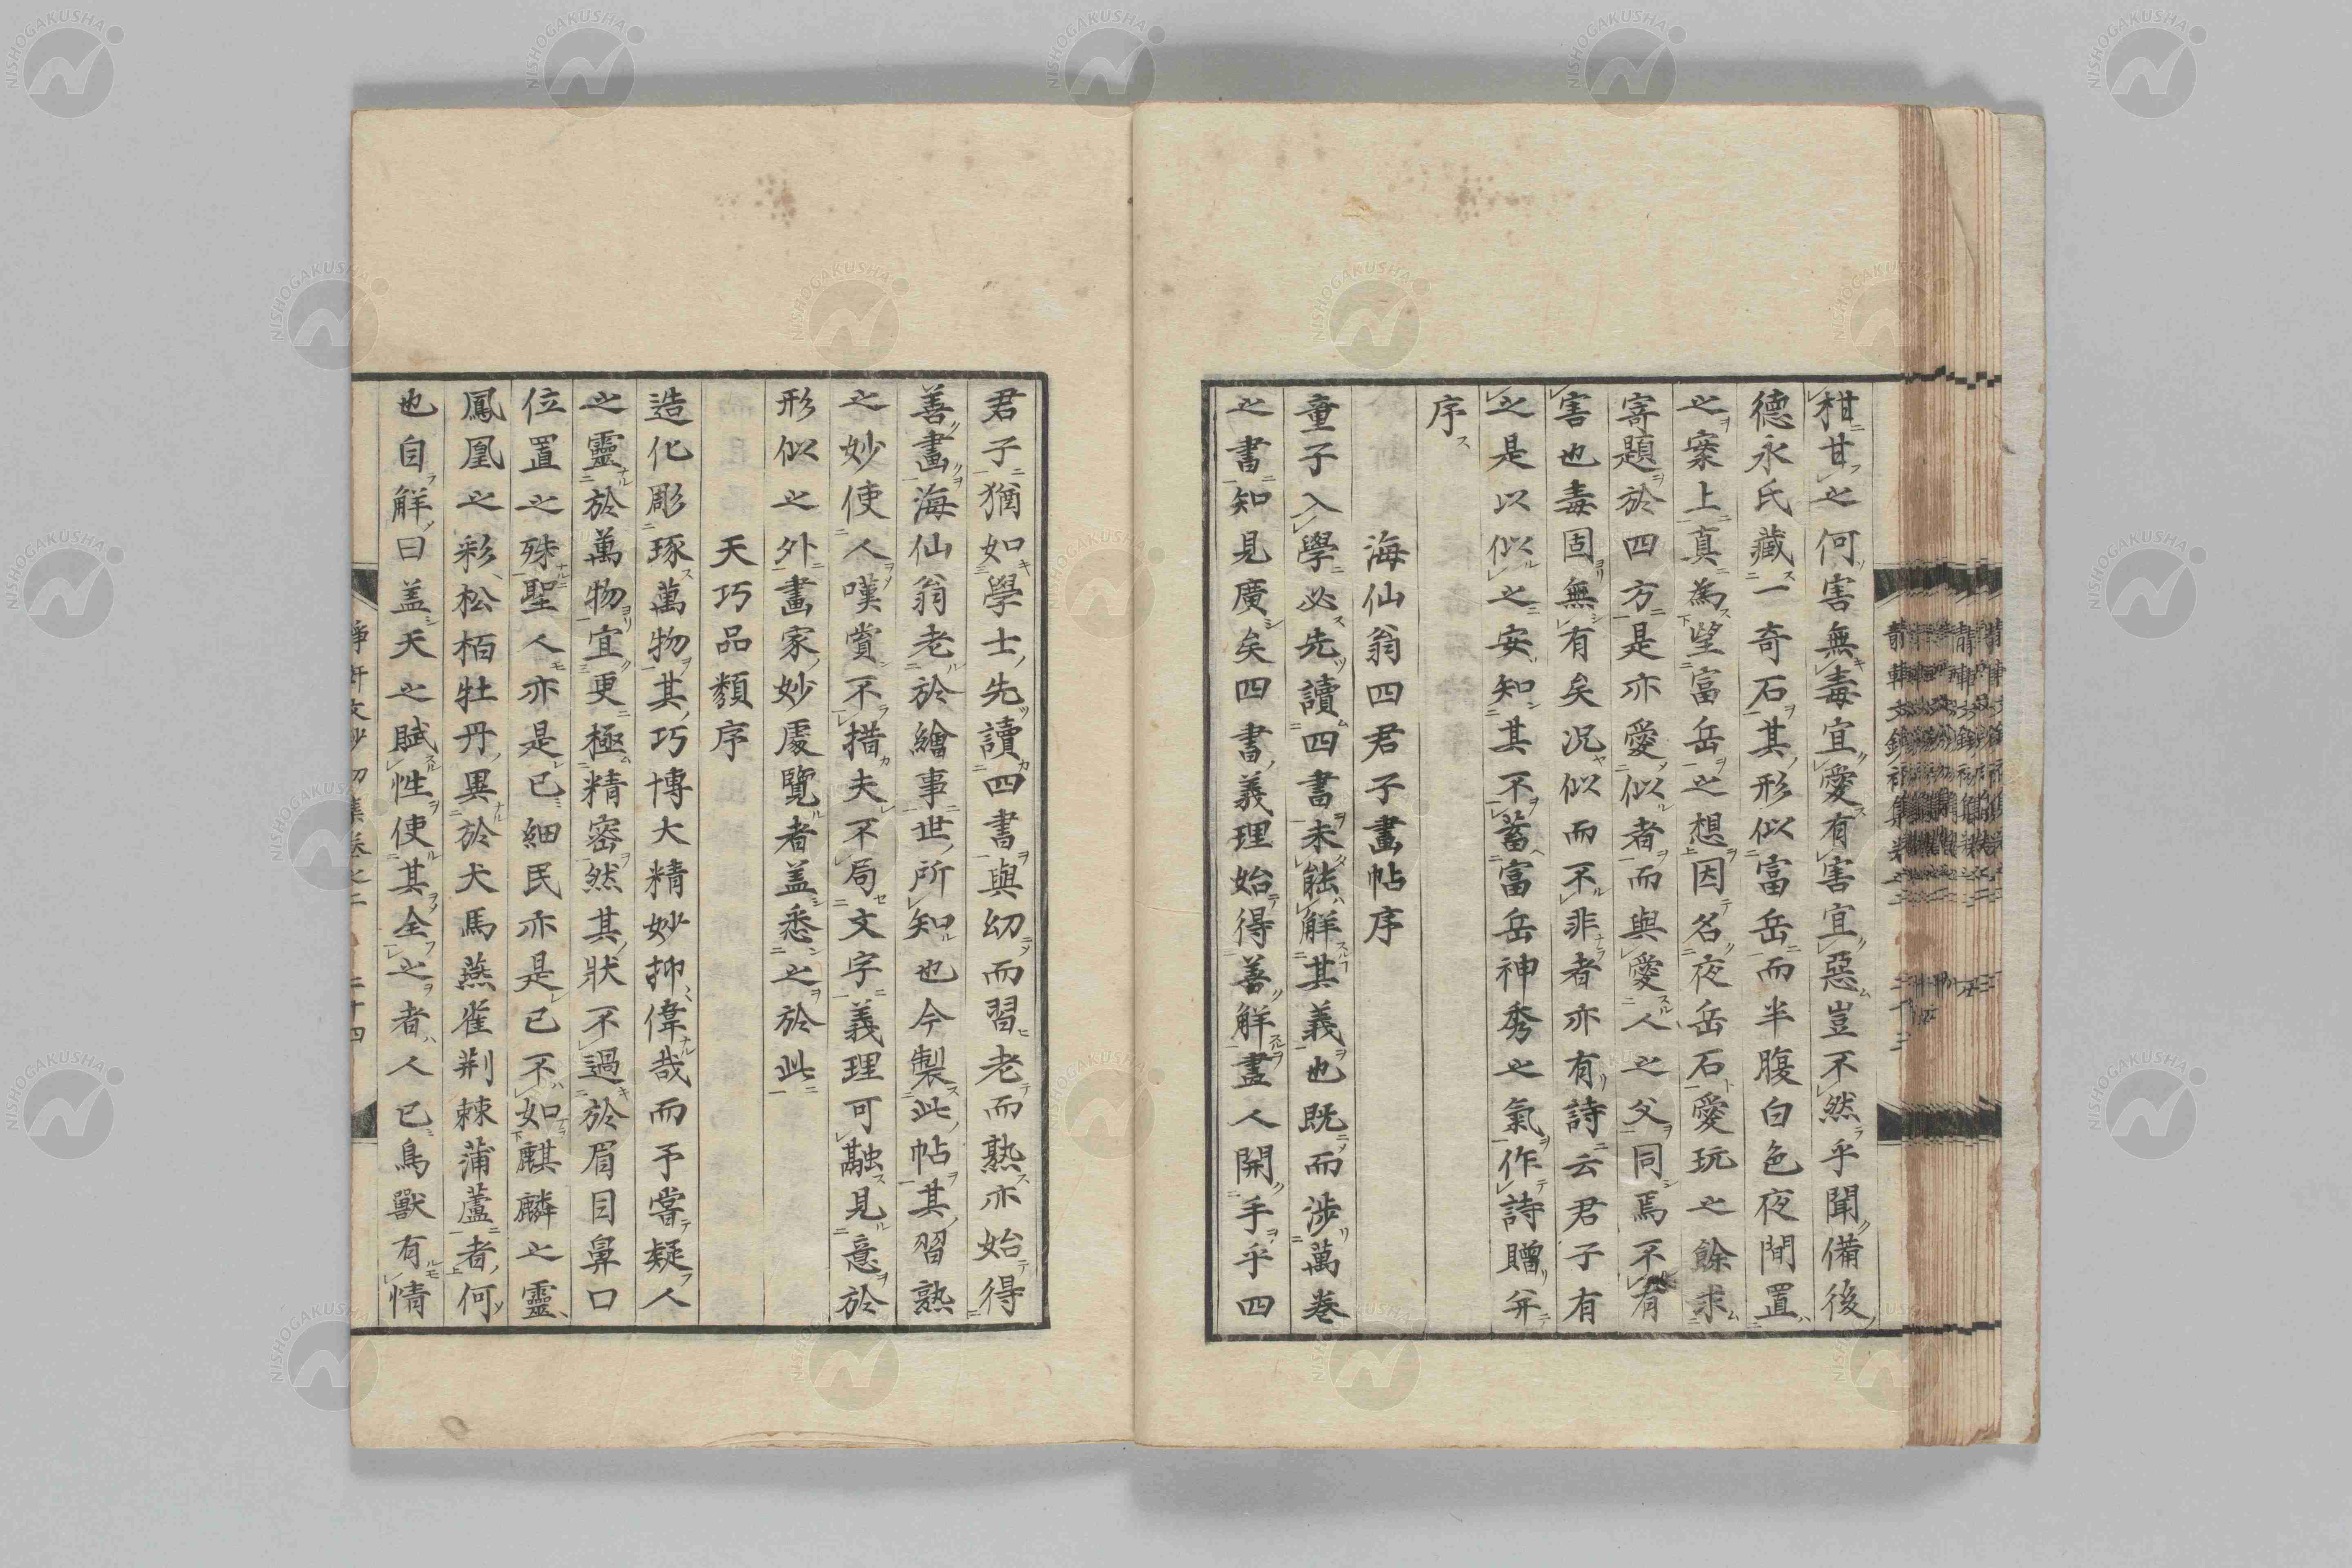 柑甘之何害無毒宜愛有害宜惡豈不然乎聞備後
德永氏藏一奇石其形似富岳而半腹白色夜間置
之寀上真為望富岳之想因名夜岳石愛玩之餘求
寄題於四方是亦愛似者而與愛人之父同焉不有
害也毒固無有矣況似而不非者亦有詩云君子有
之是以似之安知其不蓄富岳神秀之氣作詩贈并
序
海仙翁四君子畫帖序
童子入學必先讀四書未能解其義也既而涉萬卷
之書知見廣矣四書義理始得善解畫人開手乎四
君子猶如學士先讀四書與幼而習老而熟亦始得
善畫海仙翁老於繪事世所知也今製此帖其習熟
之妙使人嘆賞不措夫不局文字義理可融見意於
形似之外畫家妙處覽者盖悉之於此
天巧品類序
造化彫琢萬物其巧博大精妙抑偉哉而予嘗疑人
之靈於萬物宜更極精密然其狀不過於眉目鼻口
位置之殊聖人亦是已細民亦是已不如麒麟之靈
鳳凰之彩松栢牡丹異於犬馬燕雀荆棘蒲蘆者何
也自解曰盖天之賦性使其全之者人已鳥獸有情